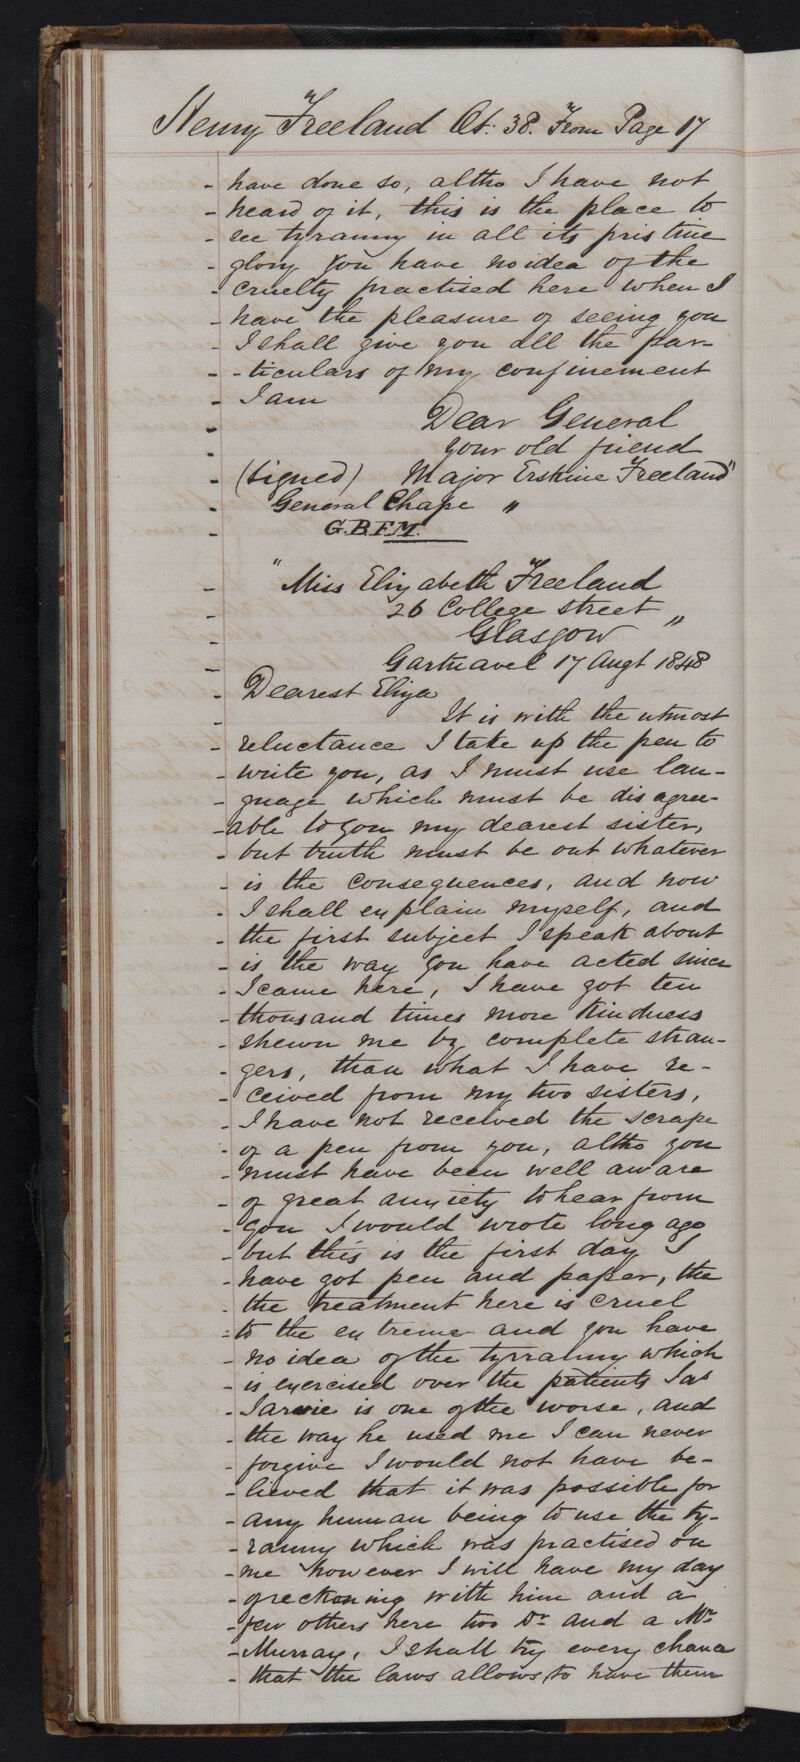 Henry Freeland Æt. 38. From Page 17
have done so, altho I have not
heard of it, this is the place to
see tyranny in all its pristine
glory you have no idea of the
cruelty practised here when I
have the pleasure of seeing you
I shall give you all the par-
-ticulars of my confinement
I am
Dear General
your old friend
(signed) Major Erskine Freeland"
General Chape "
G.B.F.M.
"Miss Elizabeth Freeland
26 College street "
Glasgow
Gartnavel 17 Augt 1848
Dearest Eliza
It is with the utmost
reluctance I take up the pen to
write you, as I must use lan-
guage which must be disagree-
able to you my dearest sister,
but truth must be out whatever
is the consequences, and now
I shall explain myself, and
the first subject I speak about
is the way you have acted since
I came here, I have got ten
thousand times more kindness
shewn me by complete stran-
gers, than what I have re-
ceived from my two sisters,
I have not received the scrape
of a pen from you, altho you
must have been well aware
of great anxiety to hear from
you I would wrote long ago
but this is the first day I
have got pen and paper, the
the treatment here is cruel
to the extreme and you have
no idea of the tyranny which
is exercised over the patients Jas
Jarvie is one of the worse, and
the way he used me I can never
forgive I would not have be-
lieved that it was possible for
any human being to use the ty-
ranny which was practised on
me however I will have my day
of reckoning with him and a
few others here two Dr and a Mr
Murray, I shall try every chance
that the laws allows to have them